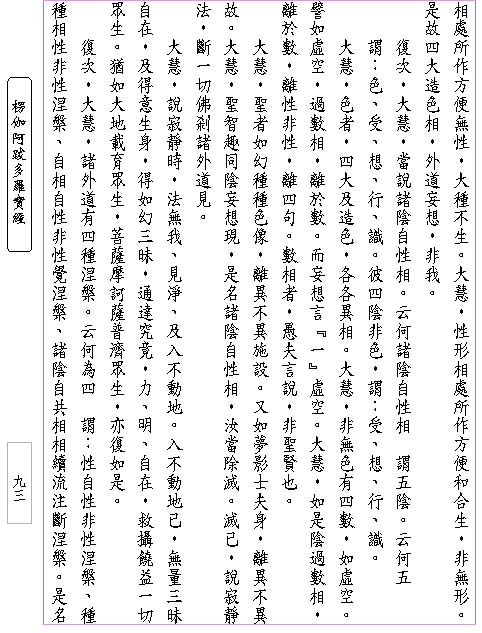 相處所作方便無性，大種不生。大慧，性形相處所作方便和合生，非無形。
是故四大造色相，外道妄想，非我。
復次，大慧，當說諸陰自性相。云何諸陰自性相　謂五陰。云何五
謂：色、受、想、行、識。彼四陰非色，謂：受、想、行、識。
大慧，色者，四大及造色，各各異相。大慧，非無色有四數，如虛空。
譬如虛空，過數相，離於數。而妄想言『一』虛空。大慧，如是陰過數相，
離於數，離性非性，離四句。數相者，愚夫言說，非聖賢也。
大慧，聖者如幻種種色像，離異不異施設。又如夢影士夫身，離異不異
故。大慧，聖智趣同陰妄想現，是名諸陰自性相，汝當除滅。滅已，說寂靜
法，斷一切佛剎諸外道見。
大慧，說寂靜時，法無我、見淨、及入不動地。入不動地已，無量三昧
自在，及得意生身，得如幻三昧，通達究竟，力、明、自在，救攝饒益一切
眾生。猶如大地載育眾生，菩薩摩訶薩普濟眾生，亦復如是。
復次，大慧，諸外道有四種涅槃。云何為四　謂：性自性非性涅槃、種
種相性非性涅槃、自相自性非性覺涅槃、諸陰自共相相續流注斷涅槃。是名
楞伽阿跋多羅寶經
九三